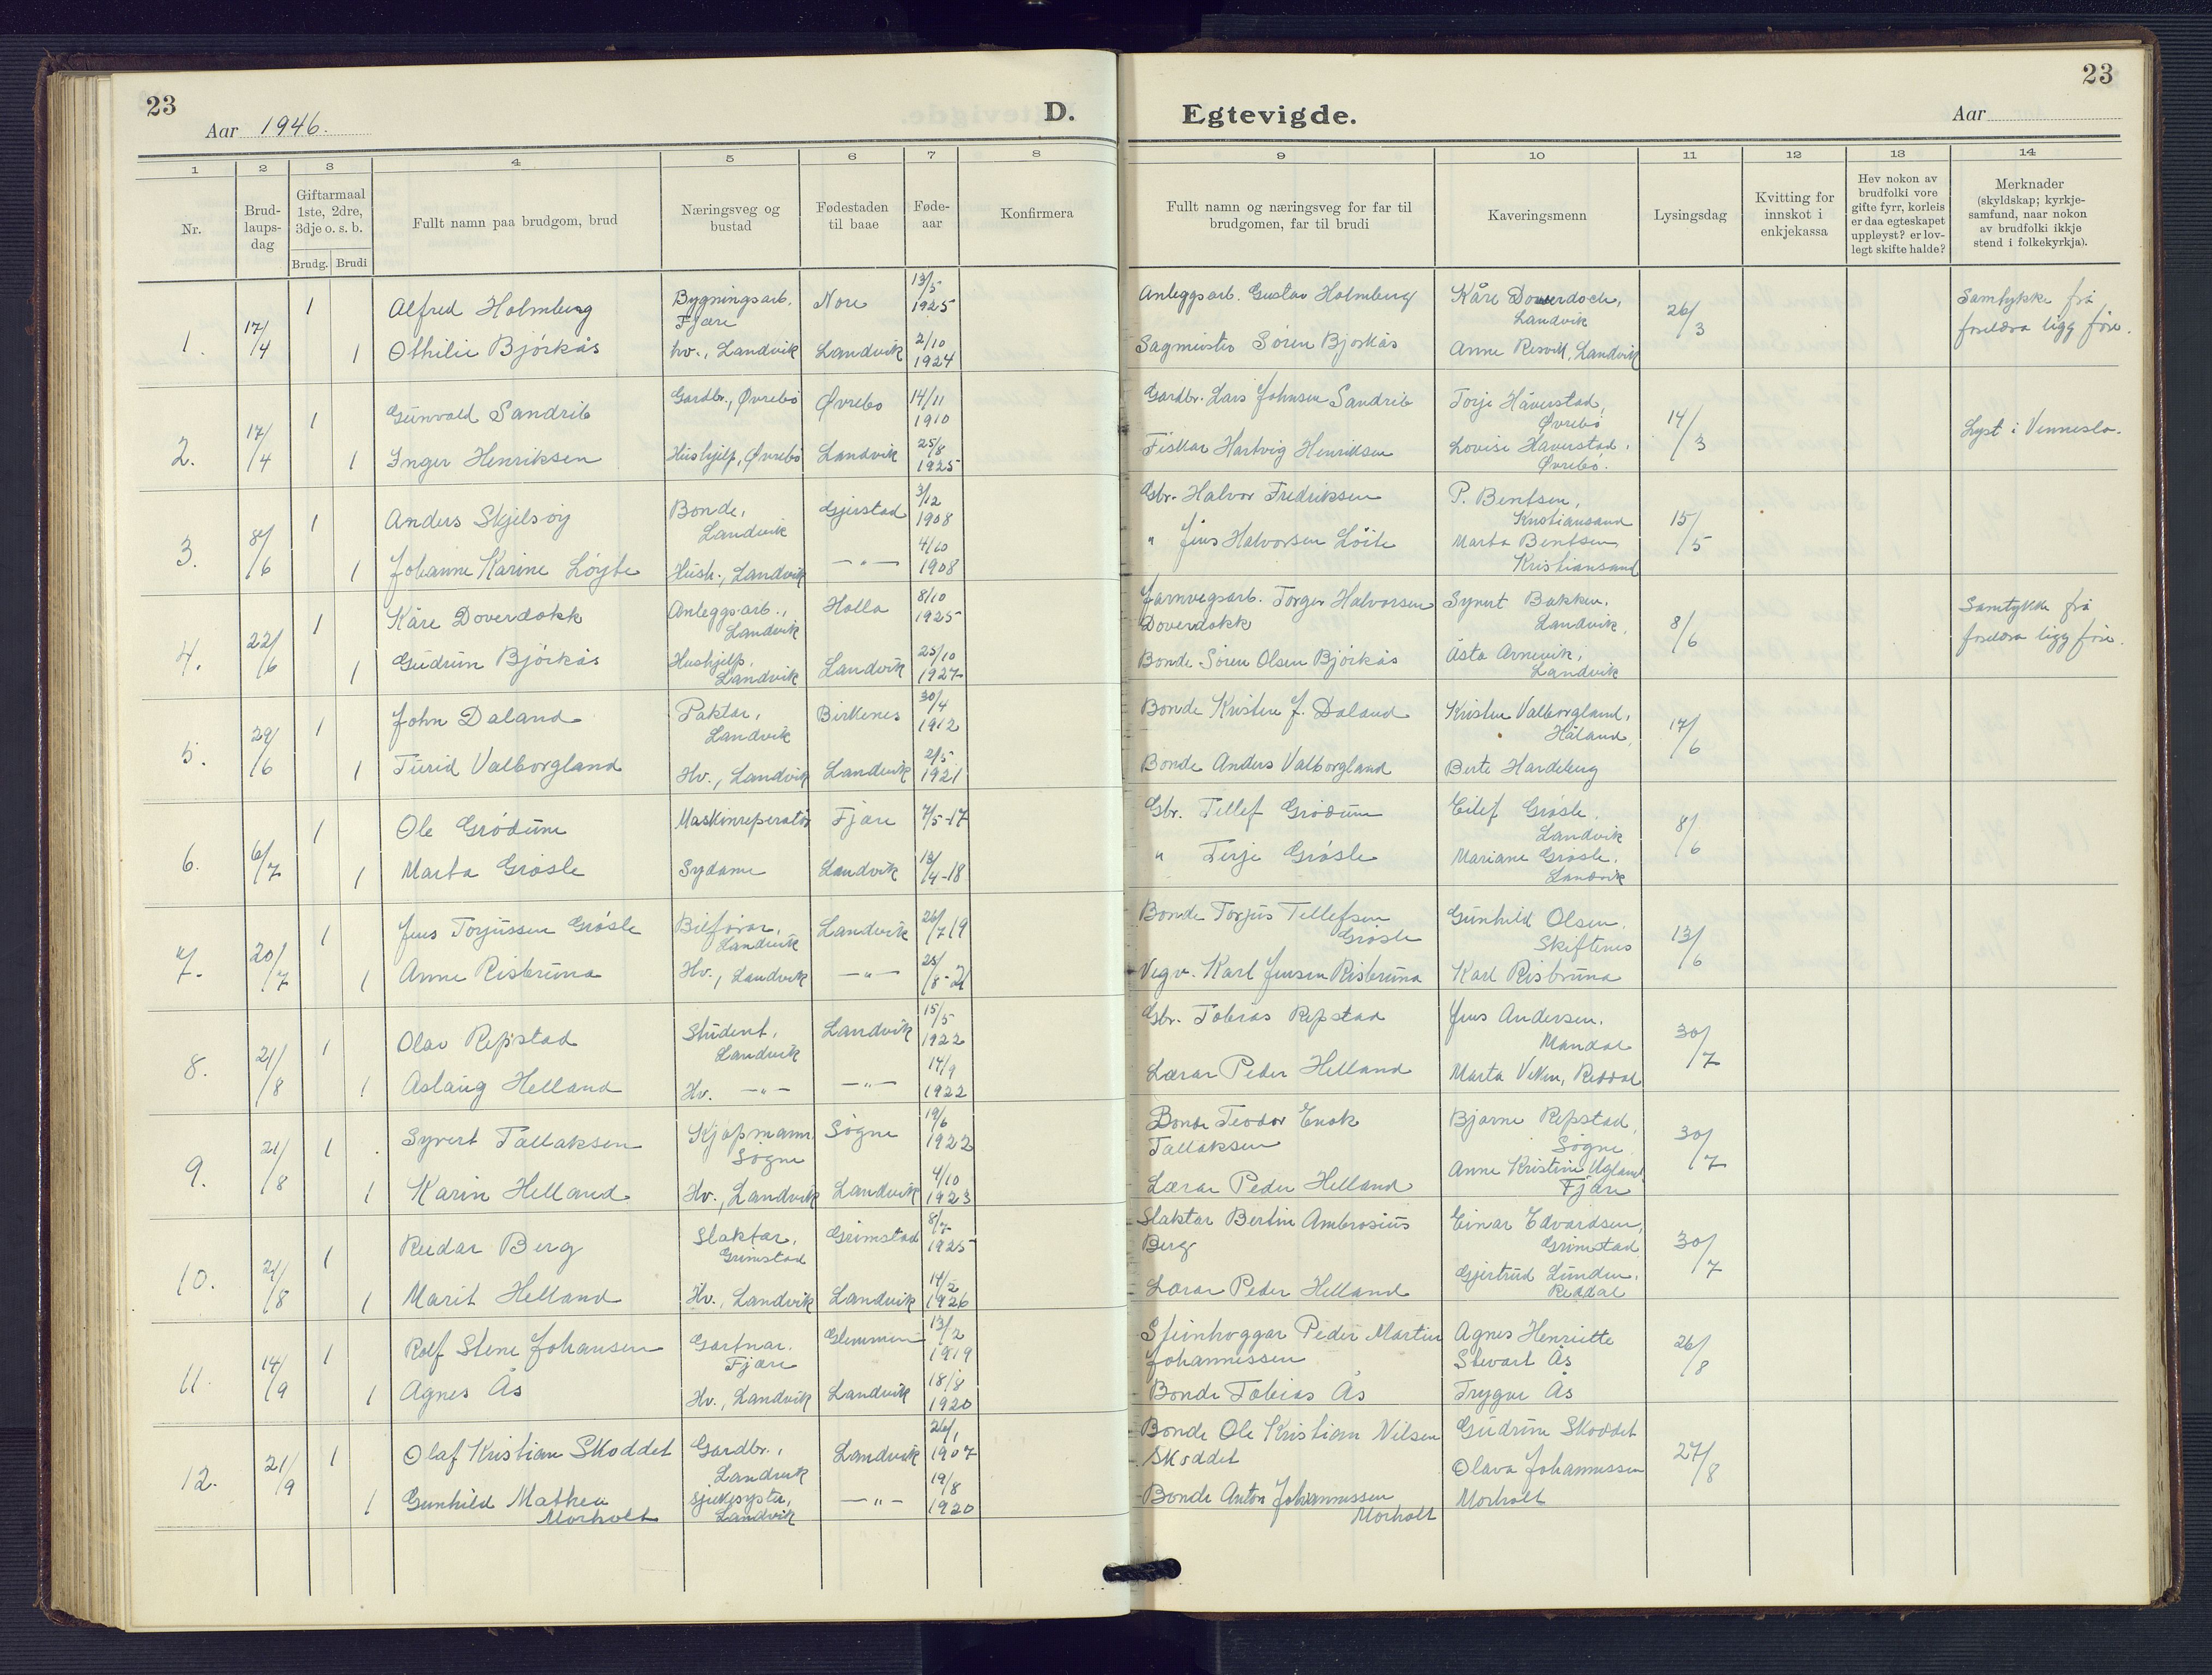 23
Aar 1946.
D.
Egtevigde.
Aar
23
1 2 3 4 5 6 7 8 9 10 11 12 13 14
Nr.
Brud-
laups-
dag
Giftarmaal
1ste, 2dre,
3dje o. s. b.
Brudg. Brudi
Fullt namn paa brudgom, brud
Næringsveg og
bustad
Fødestaden
til baae
Føde-
aar
Konfirmera
Fullt namn og næringsveg for far til
brudgomen, far til brudi
Kaveringsmenn
Lysingsdag
Kvitting for
innskot i
enkjekassa
Hev nokon av
brudfolki vore
gifte fyrr, korleis
er daa egteskapet
uppløyst? er lov-
legt skifte halde?
Merknader
(skyldskap; kyrkje-
samfund, naar nokon
av brudfolki ikkje
stend i folkekyrkja).
1. 17/4
1 Alfred Holmberg Bygningsarb. Fjære Nore 13/5 1925 Anleggsarb. Gustav Holmberg Kåre Landvik 26/3 Samtykke frå foreldra ligg føre.
1 Othilie Bjørkås hv., Landvik Landvik 2/10 1924 Sagmeister Søren Bjørkås Anne Resvik, Landvik
2. 17/4
1 Gunvald Sandrib Gardbr., Øvrebø Øvrebø 14/11 1910 Gardbr. Lars Johnsen Sandrib Torje Håverstad, Øvrebø 14/3 Lyst i Vennesla.
1 Inger Henriksen Hushjelp, Øvrebø Landvik 25/8 1925 Fiskar Hartvig Henriksen Lovise Haverstad, Øvrebø.
3. 8/6
1 Anders Skjelsøy Bonde, Landvik Gjerstad 3/12 1908 Gbr. Halvor Fredriksen P. Bentsen, Kristiansand 15/5
1 Johanne Karine Løyte Hush., Landvik —"— 4/10 1908 " Jens Halvorsen Löite Marta Bentsen Kristiansand
4. 22/6
1 Kåre Doverdokk Anleggsarb., Landvik Holla 8/10 1925 Jarnvegsarb. Torger Halvorsen Doverdokk Synert Bakken, Landvik, 8/6 Samtykke frå foreldra ligg føre.
1 Gudrun Bjørkås Hushjelp, Landvik Landvik 25/10 1927 Bonde Søren Olsen Bjørkås Åsta Arnevik, Landvik
5. 29/6
1 John Daland Paktar, Landvik Birkenes 30/4 1912 Bonde Kristen J. Daland Kristen Valborgland, Håland, 17/6
1 Turid Valborgland Hv., Landvik Landvik 2/5 1921 Bonde Anders Valborgland Berte Hardeberg
6. 6/7
1 Ole Grødum Maskinreperatør Fjære 7/5-17 Gbr. Tellef Grødum Eilef Grøsle, Landvik 8/6
1 Marta Grøsle Sydame Landvik 13/4-18 " Terje Grøsle Mariane Grøsle, Landvik
7. 20/7
1 Jens Torjussen Grøsle Bilførar, Landvik Landvik 26/7 19 Bonde Torjus Tellefsen Grøsle Gunhild Olsen, Skiftenes 13/6
1 Anne Risbruna Hv., Landvik —"— 25/8-21 Vegv. Karl Jensen Risbruna Karl Risbruna
8. 21/8
1 Olav Repstad Student, Landvik Landvik 15/5 1922 Gbr. Tobias Repstad Jens Andersen, Mandal 30/7
1 Aslaug Helland Hv. —"— —"— 14/9 1922 Lærar Peder Helland Marta Reddal
9. 21/8
1 Syvert Tallaksen Kjøpmann Søgne Søgne 19/6 1922 Bonde Teodor Enok Tallaksen Bjarne Repstad, Søgne 30/7
1 Karin Helland Hv., Landvik Landvik 4/10 1923 Lærar Peder Helland Anne Kristine Ugland Fjære
10. 21/8
1 Reidar Berg Slaktar, Grimstad Grimstad 8/7 1925 Slaktar Bertin Ambrosius Berg Einar Edvardsen, Grimstad 30/7
1 Marit Helland Hv., Landvik Landvik 14/2 1926 Lærar Peder Helland Gjertrud Lunden, Reddal
11. 14/9
1 Rolf Stene Johansen Gartnar. Fjære Glemmen 13/2 1919 Steinhoggar Peder Martin Johannessen Agnes Henriette Stevart Ås 26/8
1 Agnes Ås Hv., Landvik Landvik 18/8 1920 Bonde Tobias Ås Trygve Ås
12. 21/9
1 Olaf Kristian Skoddet Gardbr., Landvik Landvik 26/1 1907 Bonde Ole Kristian Nilsen Skoddet Gudrun Skoddet 27/8
1 Gunhild Mathea Morholt Sjuksyster, Landvik —"— 19/8 1920 Bonde Anton Johannessen Morholt Olava Johannessen Morholt